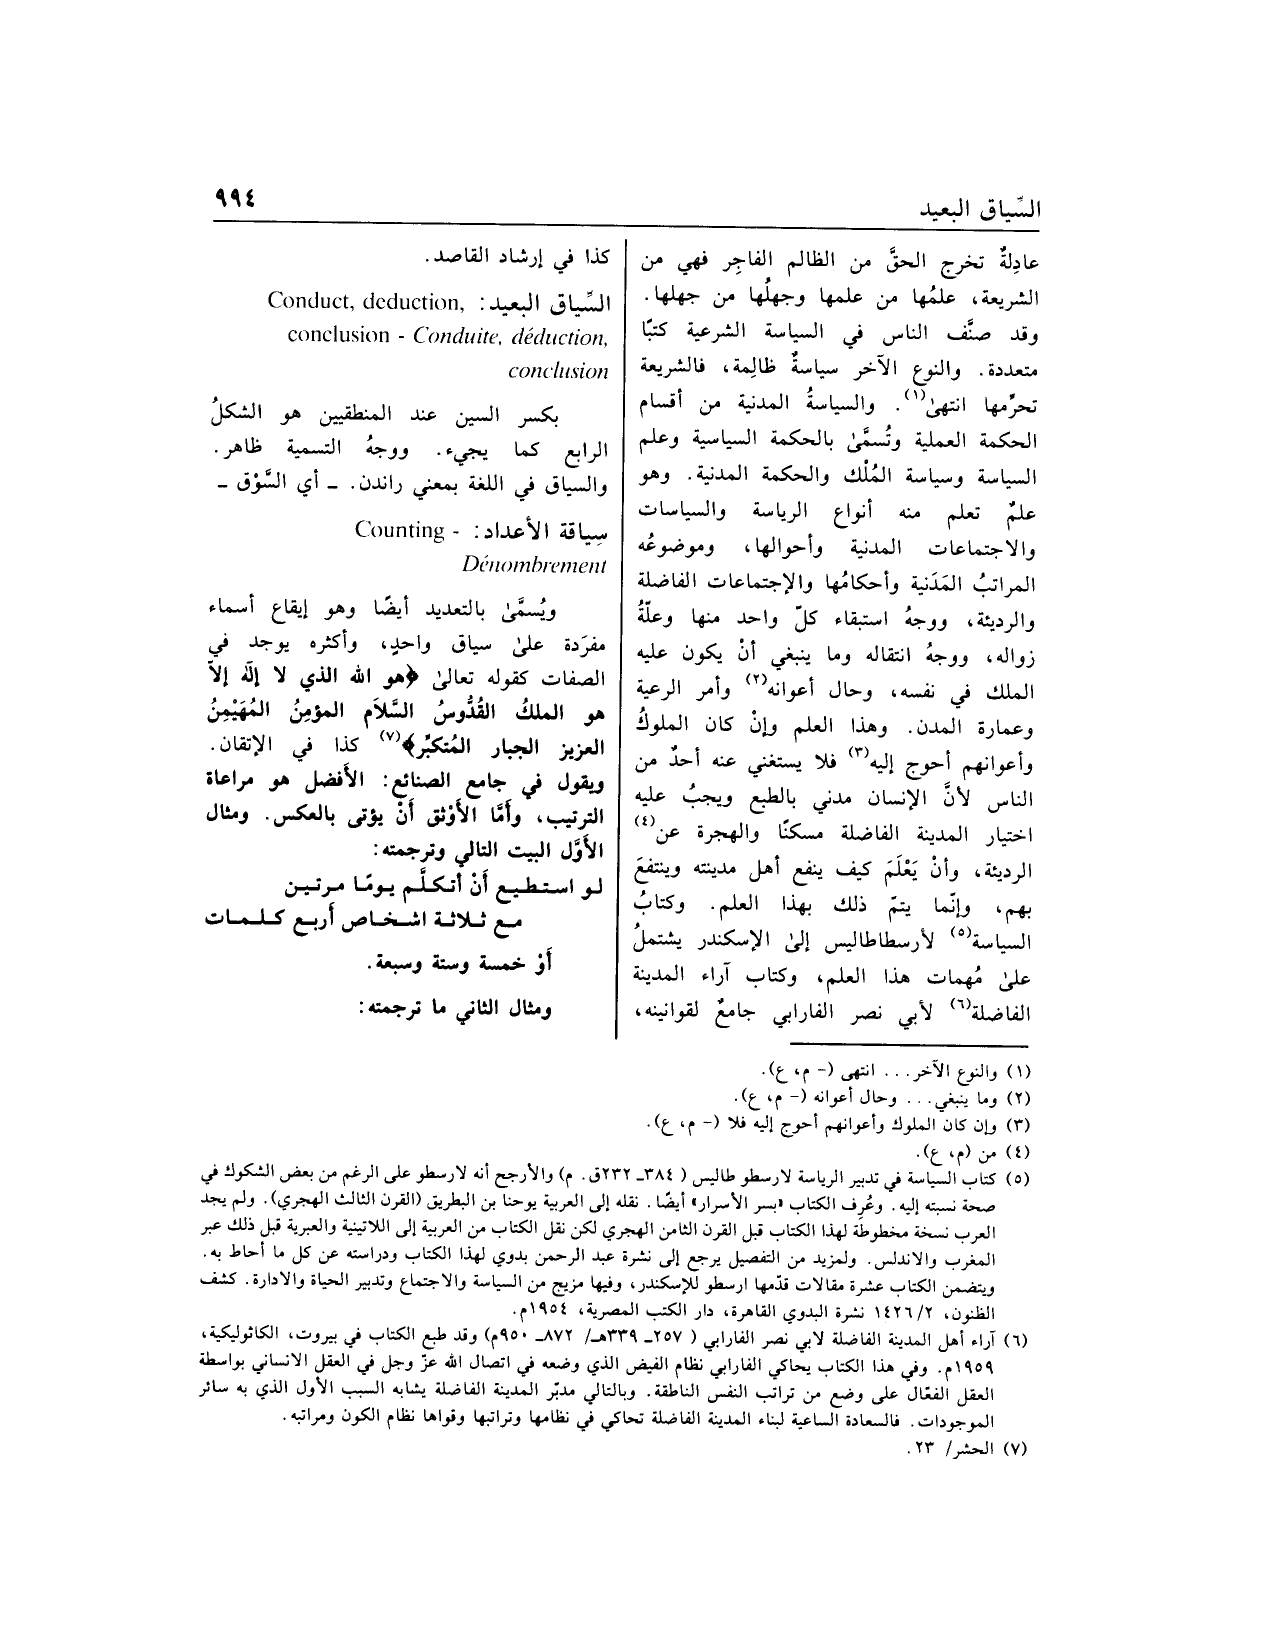 السِّياق البعيد
٩٩٤
عادِلةٌ تخرج الحقَّ من الظالم الفاجِر فهي من
الشريعة، علمُها من علمها وجهلُها من جهلها.
وقد صنَّف الناس في السياسة الشرعية كتبًا
متعددة. والنوع الآخر سياسةٌ ظالِمة، فالشريعة
تحرِّمها انتهىٰ(١). والسياسةُ المدنية من أقسام
الحكمة العملية وتُسمَّىٰ بالحكمة السياسية وعلم
السياسة وسياسة المُلْك والحكمة المدنية. وهو
علمٌ تعلم منه أنواع الرياسة والسياسات
والاجتماعات المدنية وأحوالها، وموضوعُه
المراتبُ المَدَنية وأحكامُها والإجتماعات الفاضلة
والرديئة، ووجهُ استبقاء كلّ واحد منها وعلّةُ
زواله، ووجهُ انتقاله وما ينبغي أنْ يكون عليه
الملك في نفسه، وحال أعوانه(٢) وأمر الرعية
وعمارة المدن. وهذا العلم وإنْ كان الملوكُ
وأعوانهم أحوج إليه(٣) فلا يستغني عنه أحدٌ من
الناس لأنَّ الإنسان مدني بالطبع ويجبُ عليه
اختيار المدينة الفاضلة مسكنًا والهجرة عن(٤)
الرديئة، وأنْ يَعْلَمَ كيف ينفع أهل مدينته وينتفعَ
بهم، وإنّما يتمّ ذلك بهذا العلم. وكتابُ
السياسة(٥) لأرسطاطاليس إلىٰ الإسكندر يشتملُ
علىٰ مُهمات هذا العلم، وكتاب آراء المدينة
الفاضلة(٦) لأبي نصر الفارابي جامعٌ لقوانينه،
كذا في إرشاد القاصد.
السِّياق البعيد: Conduct, deduction,
conclusion - Conduite, déduction,
conclusion
بكسر السين عند المنطقيين هو الشكلُ
الرابع كما يجيء. ووجهُ التسمية ظاهر.
والسياق في اللغة بمعني راندن. ـ أي السَّوْق ـ
سِياقة الأعداد: Counting -
Dénombrement
ويُسمَّىٰ بالتعديد أيضًا وهو إيقاع أسماء
مفرَدة علىٰ سياق واحدٍ، وأكثره يوجد في
الصفات كقوله تعالىٰ ﴿هو الله الذي لا إلَه إلاّ
هو الملكُ القُدُّوسُ السَّلاَم المؤمِنُ المُهَيْمِنُ
العزيز الجبار المُتكبِّر﴾(٧) كذا في الإتقان.
ويقول في جامع الصنائع: الأفضل هو مراعاة
الترتيب، وأمَّا الأوْثق أنْ يؤتى بالعكس. ومثال
الأوَّل البيت التالي وترجمته:
لو استطيع أنْ أتكلَّم يومًا مرتين
مع ثلاثة اشخاص أربع كلمات
أوْ خمسة وستة وسبعة.
ومثال الثاني ما ترجمته:
(١) والنوع الآخر... انتهى (- م، ع).
(٢) وما ينبغي... وحال أعوانه (- م، ع).
(٣) وإن كان الملوك وأعوانهم أحوج إليه فلا (- م، ع).
(٤) من (م، ع).
(٥) كتاب السياسة في تدبير الرياسة لارسطو طاليس ( ٣٨٤ـ ٢٣٢ق. م) والأرجح أنه لارسطو على الرغم من بعض الشكوك في
صحة نسبته إليه. وعُرِف الكتاب «بسر الأسرار» أيضًا. نقله إلى العربية يوحنا بن البطريق (القرن الثالث الهجري). ولم يجد
العرب نسخة مخطوطة لهذا الكتاب قبل القرن الثامن الهجري لكن نقل الكتاب من العربية إلى اللاتينية والعبرية قبل ذلك عبر
المغرب والاندلس. ولمزيد من التفصيل يرجع إلى نشرة عبد الرحمن بدوي لهذا الكتاب ودراسته عن كل ما أحاط به.
ويتضمن الكتاب عشرة مقالات قدّمها ارسطو للإسكندر، وفيها مزيج من السياسة والاجتماع وتدبير الحياة والادارة. كشف
الظنون، ٢/ ١٤٢٦ نشرة البدوي القاهرة، دار الكتب المصرية، ١٩٥٤م.
(٦) آراء أهل المدينة الفاضلة لابي نصر الفارابي ( ٢٥٧ـ ٣٣٩هـ/ ٨٧٢ـ ٩٥٠م) وقد طبع الكتاب في بيروت، الكاثوليكية،
١٩٥٩م. وفي هذا الكتاب يحاكي الفارابي نظام الفيض الذي وضعه في اتصال الله عزّ وجل في العقل الانساني بواسطة
العقل الفعّال على وضع من تراتب النفس الناطقة. وبالتالي مدبّر المدينة الفاضلة يشابه السبب الأول الذي به سائر
الموجودات. فالسعادة الساعية لبناء المدينة الفاضلة تحاكي في نظامها وتراتبها وقواها نظام الكون ومراتبه.
(٧) الحشر/ ٢٣.